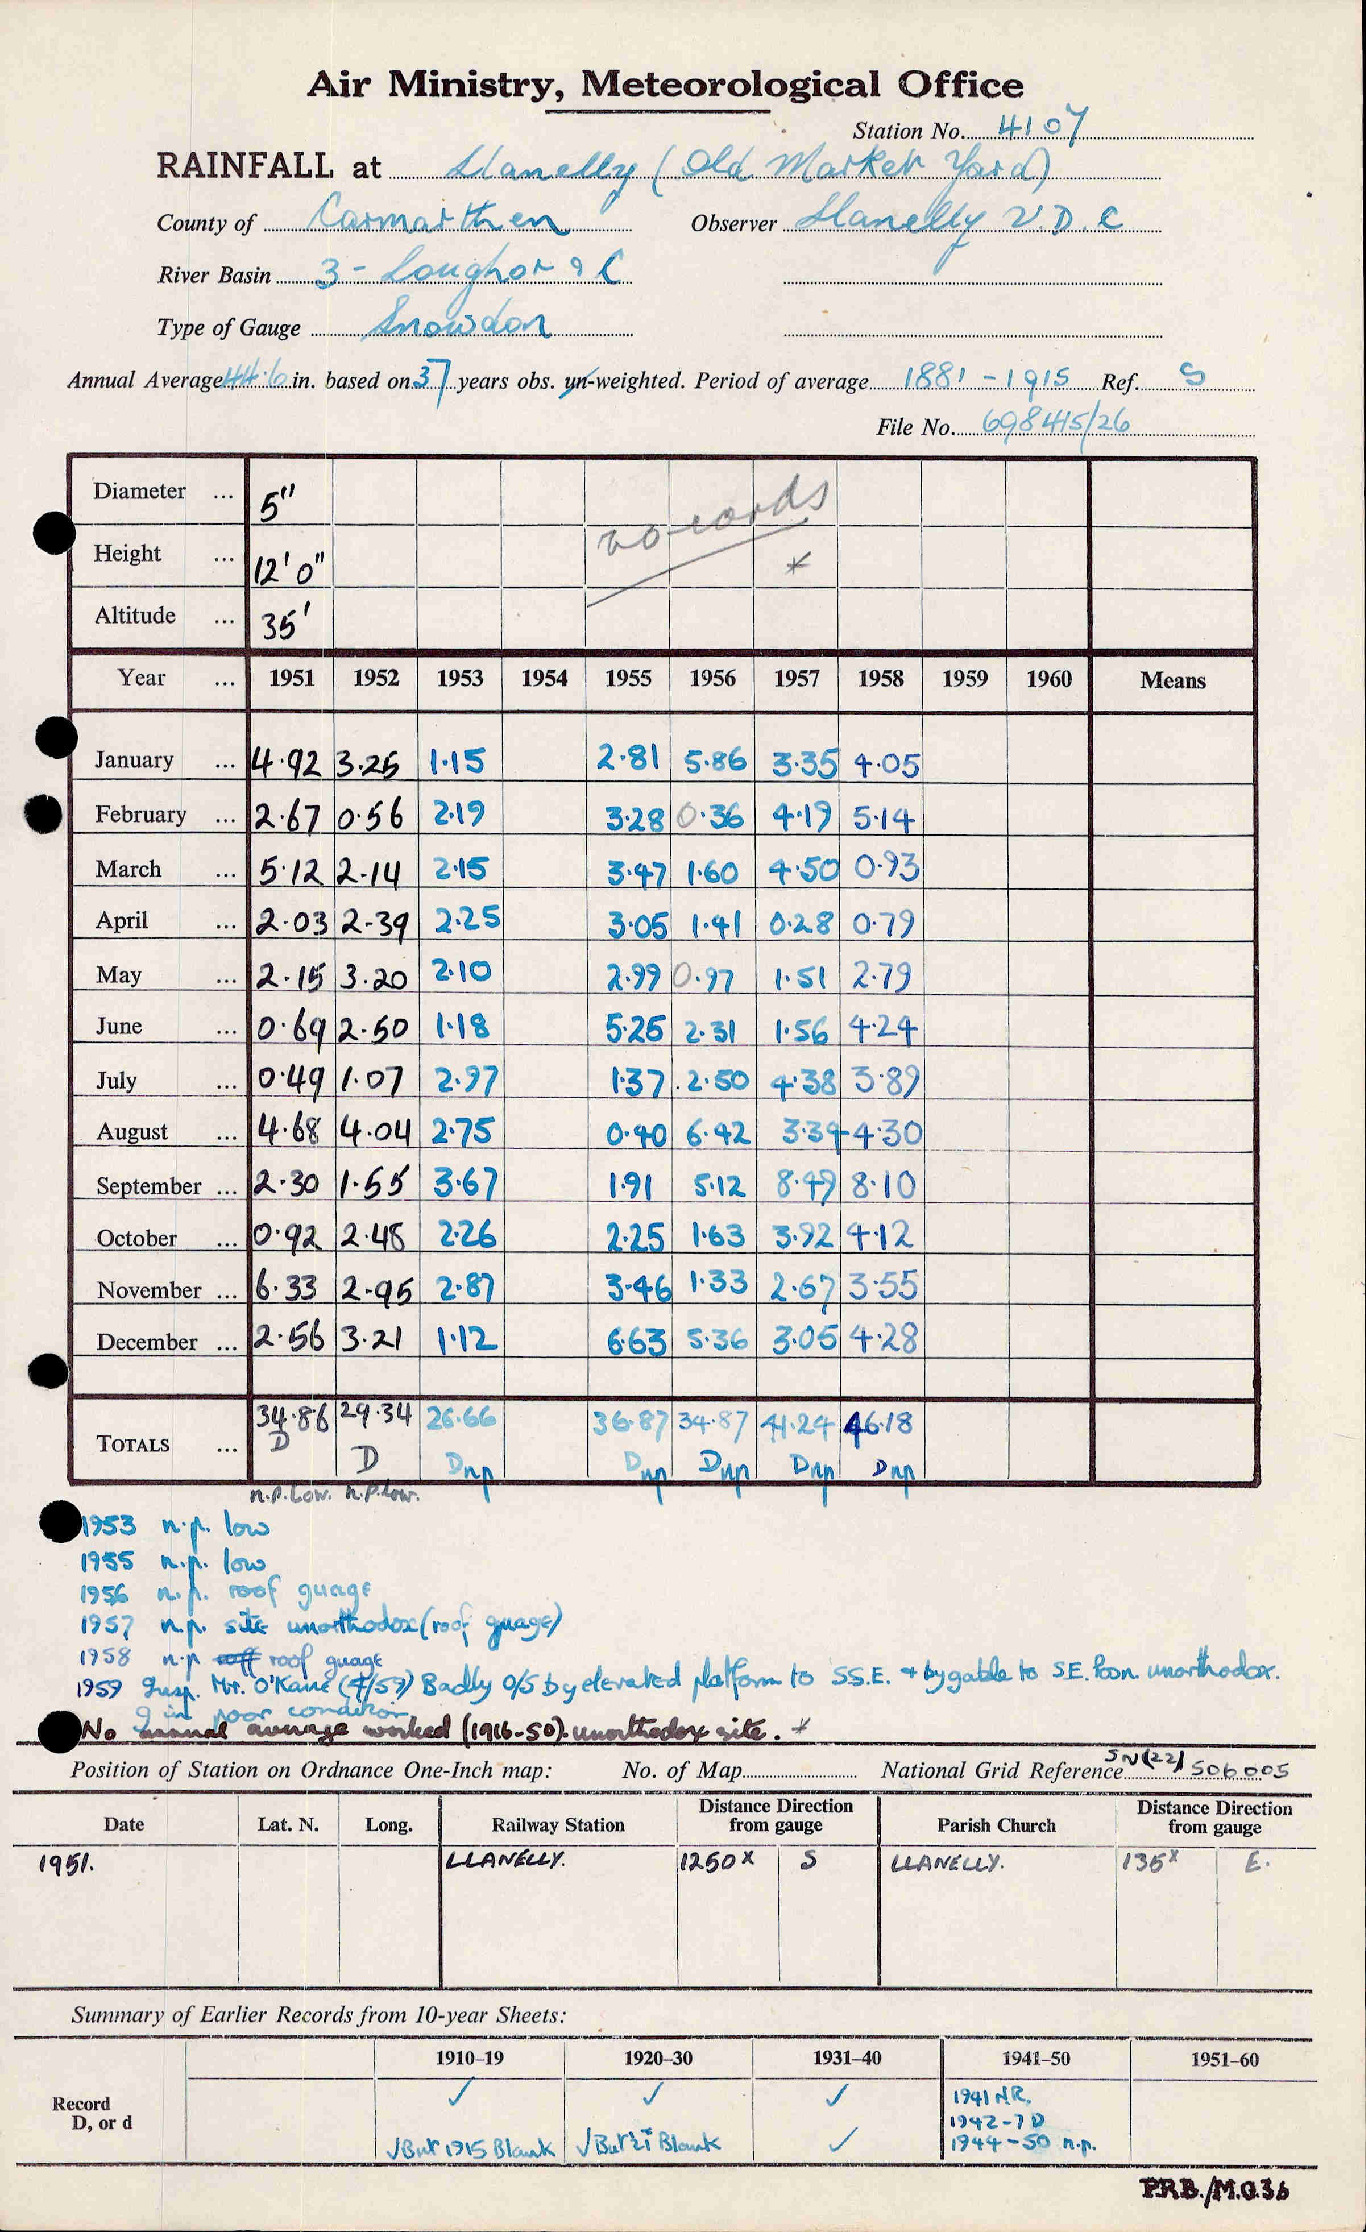 Air Ministry, Meteorological Office
Station No. 4107
RAINFALL at Llanelly (Old Market Yard)
County of Carmarthen Observer Llanelly U.D.C
River Basin 3 - Loughor & C
Type of Gauge Snowdon
Annual Average 44.6 in. based on 37 years obs. un-weighted. Period of average 1881 - 1915 Ref. S
File No. 698445/26
Diameter ... 5"
Height ... 12' 0" *
Altitude ... 35'
Year ... 1951 1952 1953 1954 1955 1956 1957 1958 1959 1960 Means
January ... 4.92 3.25 1.15 2.81 5.86 3.35 4.05
February ... 2.67 0.56 2.19 3.28 0.36 4.19 5.14
March ... 5.12 2.14 2.15 3.47 1.60 4.50 0.93
April ... 2.03 2.39 2.25 3.05 1.41 0.28 0.79
May ... 2.15 3.20 2.10 2.99 0.97 1.51 2.79
June ... 0.69 2.50 1.18 5.25 2.31 1.56 4.24
July ... 0.49 1.07 2.97 1.37 2.50 4.38 3.89
August ... 4.68 4.04 2.75 0.40 6.42 3.34 4.30
September ... 2.30 1.55 3.67 1.91 5.12 8.49 8.10
October ... 0.92 2.48 2.26 2.25 1.63 3.92 4.12
November ... 6.33 2.95 2.87 3.46 1.33 2.67 3.55
December ... 2.56 3.21 1.12 6.63 5.36 3.05 4.28
TOTALS ... 34.86 29.34 26.66 36.87 34.87 41.24 46.18
D D Dnp Dnp Dnp Dnp Dnp
n.p. low. n.p. low.
1953 n.p. low
1955 n.p. low
1956 n.p. roof guage
1957 n.p. site unorthodox (roof guage)
1958 n.p. roof guage
1959 Insp. Mr. O'Kane (4/59) Badly o/s by elevated platform to SSE. + by gable to SE. Posn. unorthodox.
g in poor condition
No annual average worked (1916-50) unorthodox site. *
Position of Station on Ordnance One-Inch map: No. of Map National Grid Reference SN(22) 506005
Date Lat. N. Long. Railway Station Distance Direction from gauge Parish Church Distance Direction from gauge
1951. LLANELLY. 1250x S LLANELLY. 135x E.
Summary of Earlier Records from 10-year Sheets:
1910–19 1920–30 1931–40 1941–50 1951–60
Record ✓ ✓ ✓ 1941 N.R.
D, or d 1942-7 D
√But 1915 Blank √But 21 Blank ✓ 1944-50 n.p.
P.R.B./M.O.36